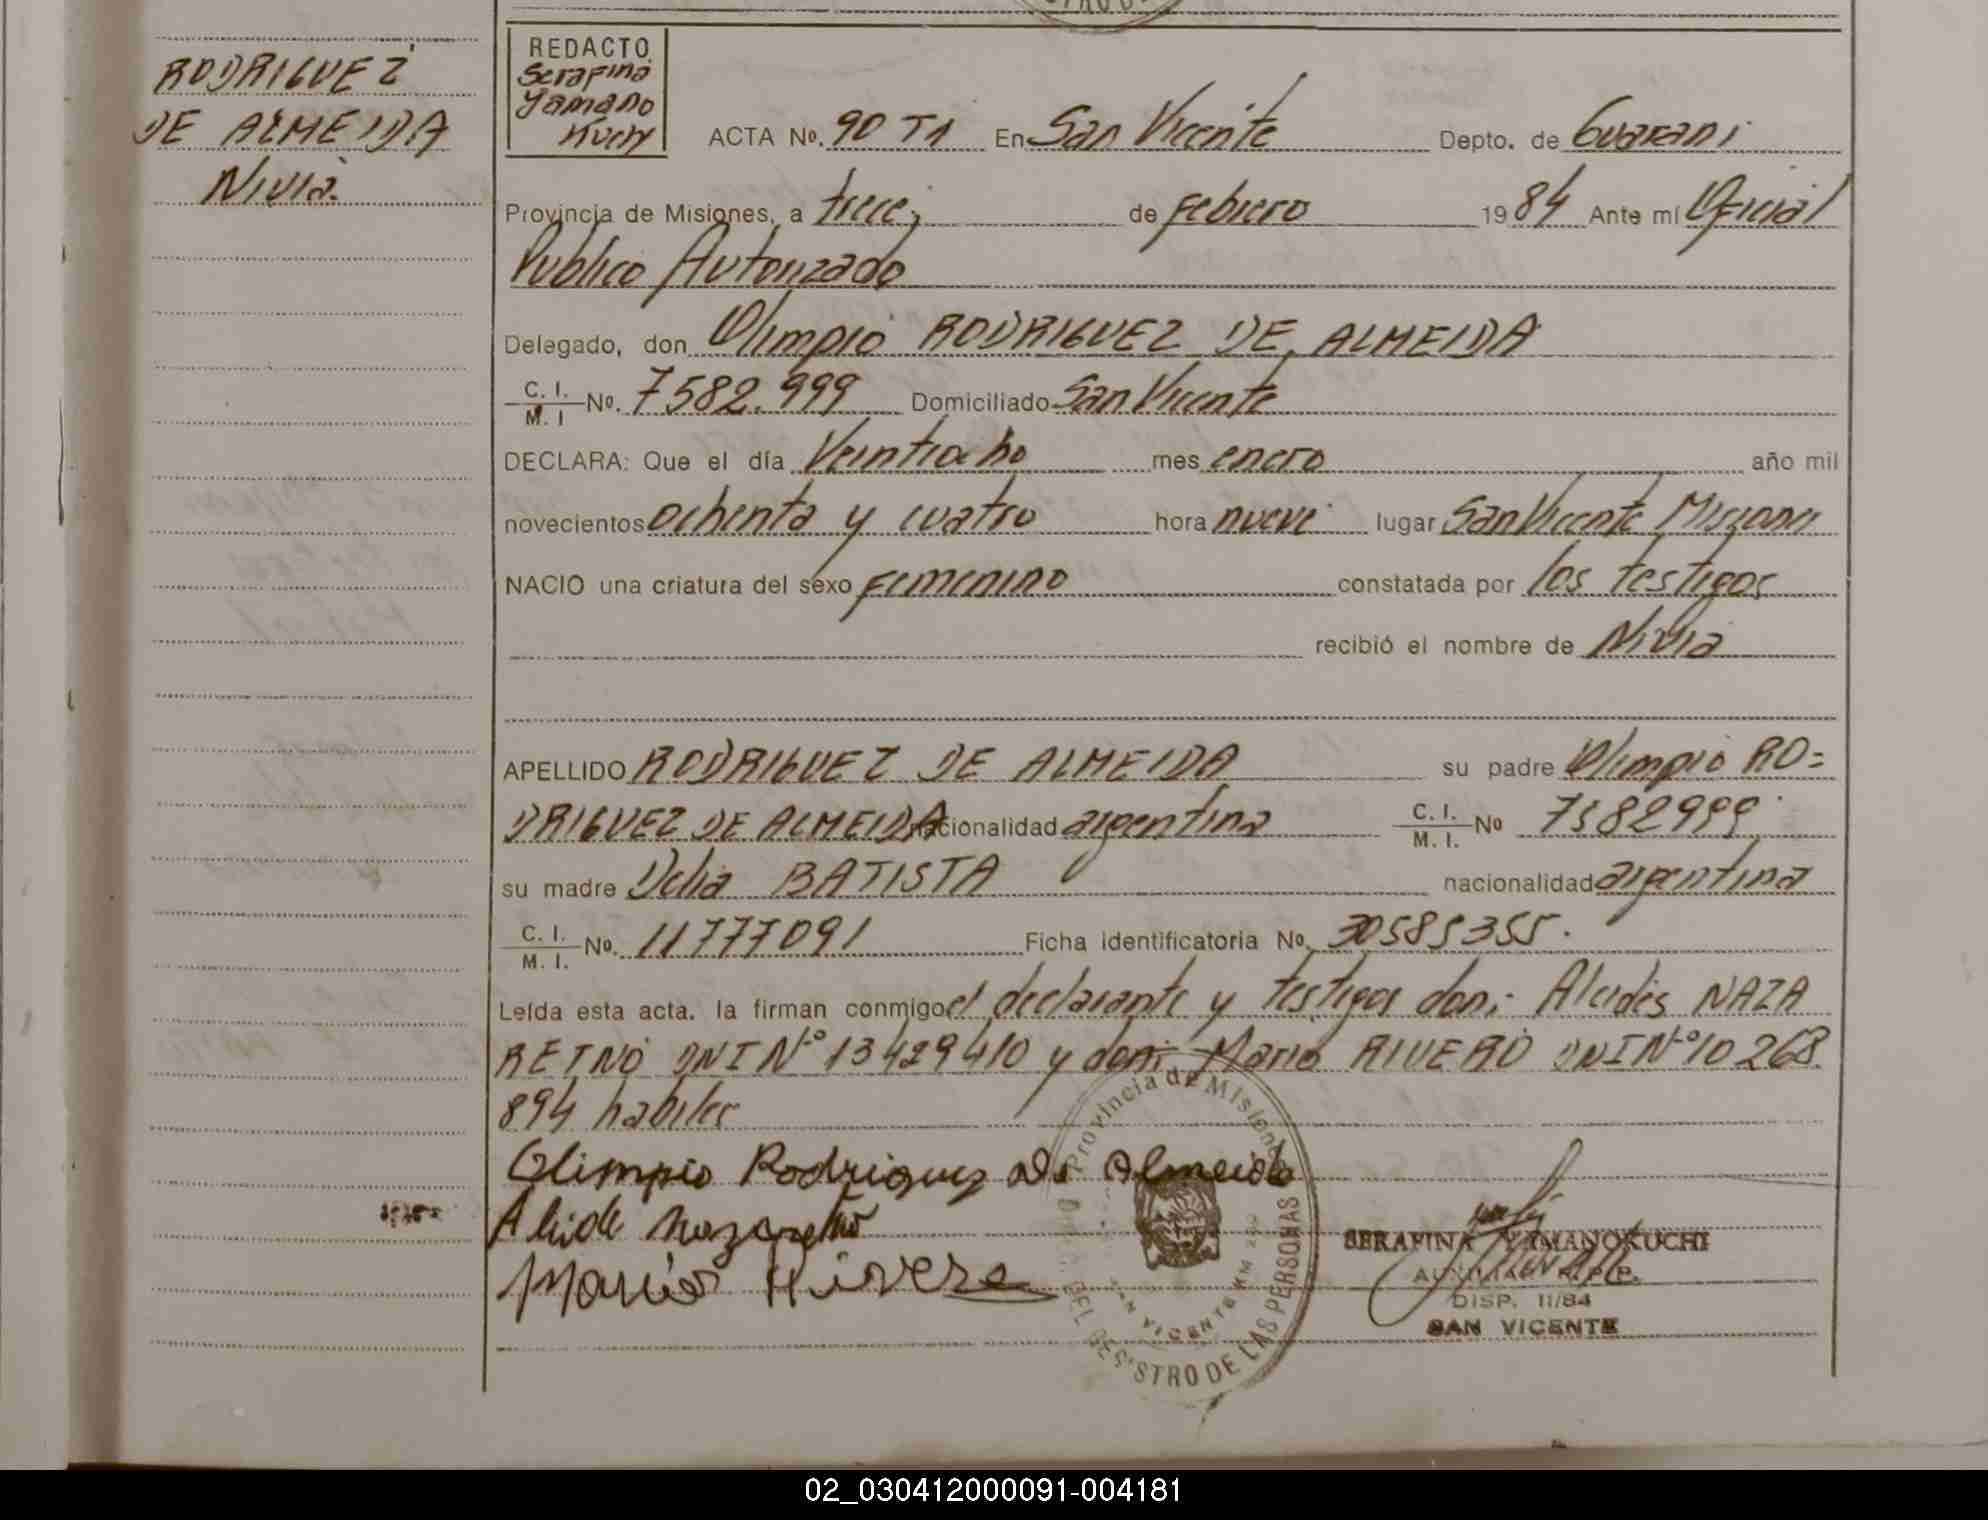 RODRIGUEZ
DE ALMEIDA
Nivia.
REDACTO
Serafina
Yamano
Kuchy
ACTA No. 90 T1 En San Vicente Depto. de Guarani
Provincia de Misiones, a trece, de Febrero 1984 Ante mí Oficial
Publico Autorizado
Delegado, don Olimpio RODRIGUEZ DE ALMEIDA
C. I. / M. I No. 7582.999 Domiciliado San Vicente
DECLARA: Que el día Veintiocho mes enero año mil
novecientos ochenta y cuatro hora nueve lugar San Vicente Misiones
NACIO una criatura del sexo Femenino constatada por los testigos
recibió el nombre de Nivia
APELLIDO RODRIGUEZ DE ALMEIDA su padre Olimpio RO=
DRIGUEZ DE ALMEIDA nacionalidad argentina C. I. / M. I. No 7582999
su madre Delia BATISTA nacionalidad argentina
C. I. / M. I. No. 11777091 Ficha identificatoria No. 30585355.
Leída esta acta, la firman conmigo el declarante y testigos don: Alcides NAZA
RETNO DNI Nº 13429410 y don: Mario RIVERO DNI Nº 10268
894 habiles
Olimpio Rodriguez de Almeida
Alcide Nazaretno
Mario Rivero
Provincia de Misiones
DEL REGISTRO DE LAS PERSONAS
SAN VICENTE MM
SERAFINA YAMANOKUCHI
AUXILIAR R.P.P.
DISP. 11/84
SAN VICENTE
02_030412000091-004181